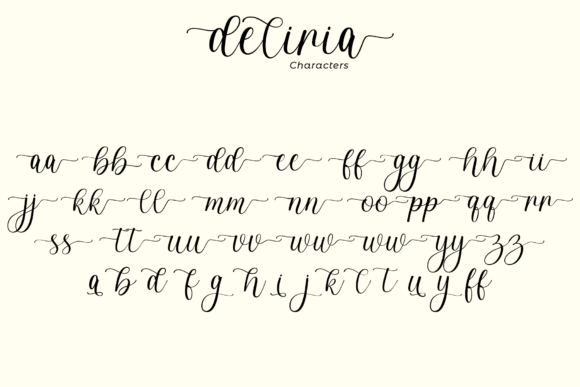 deliria
Characters
aa bb cc dd ee ff gg hh ii
jj kk ll mm nn oo pp qq rr
ss tt uu vv ww ww yy zz
a b d f g h i j k l t u y ff